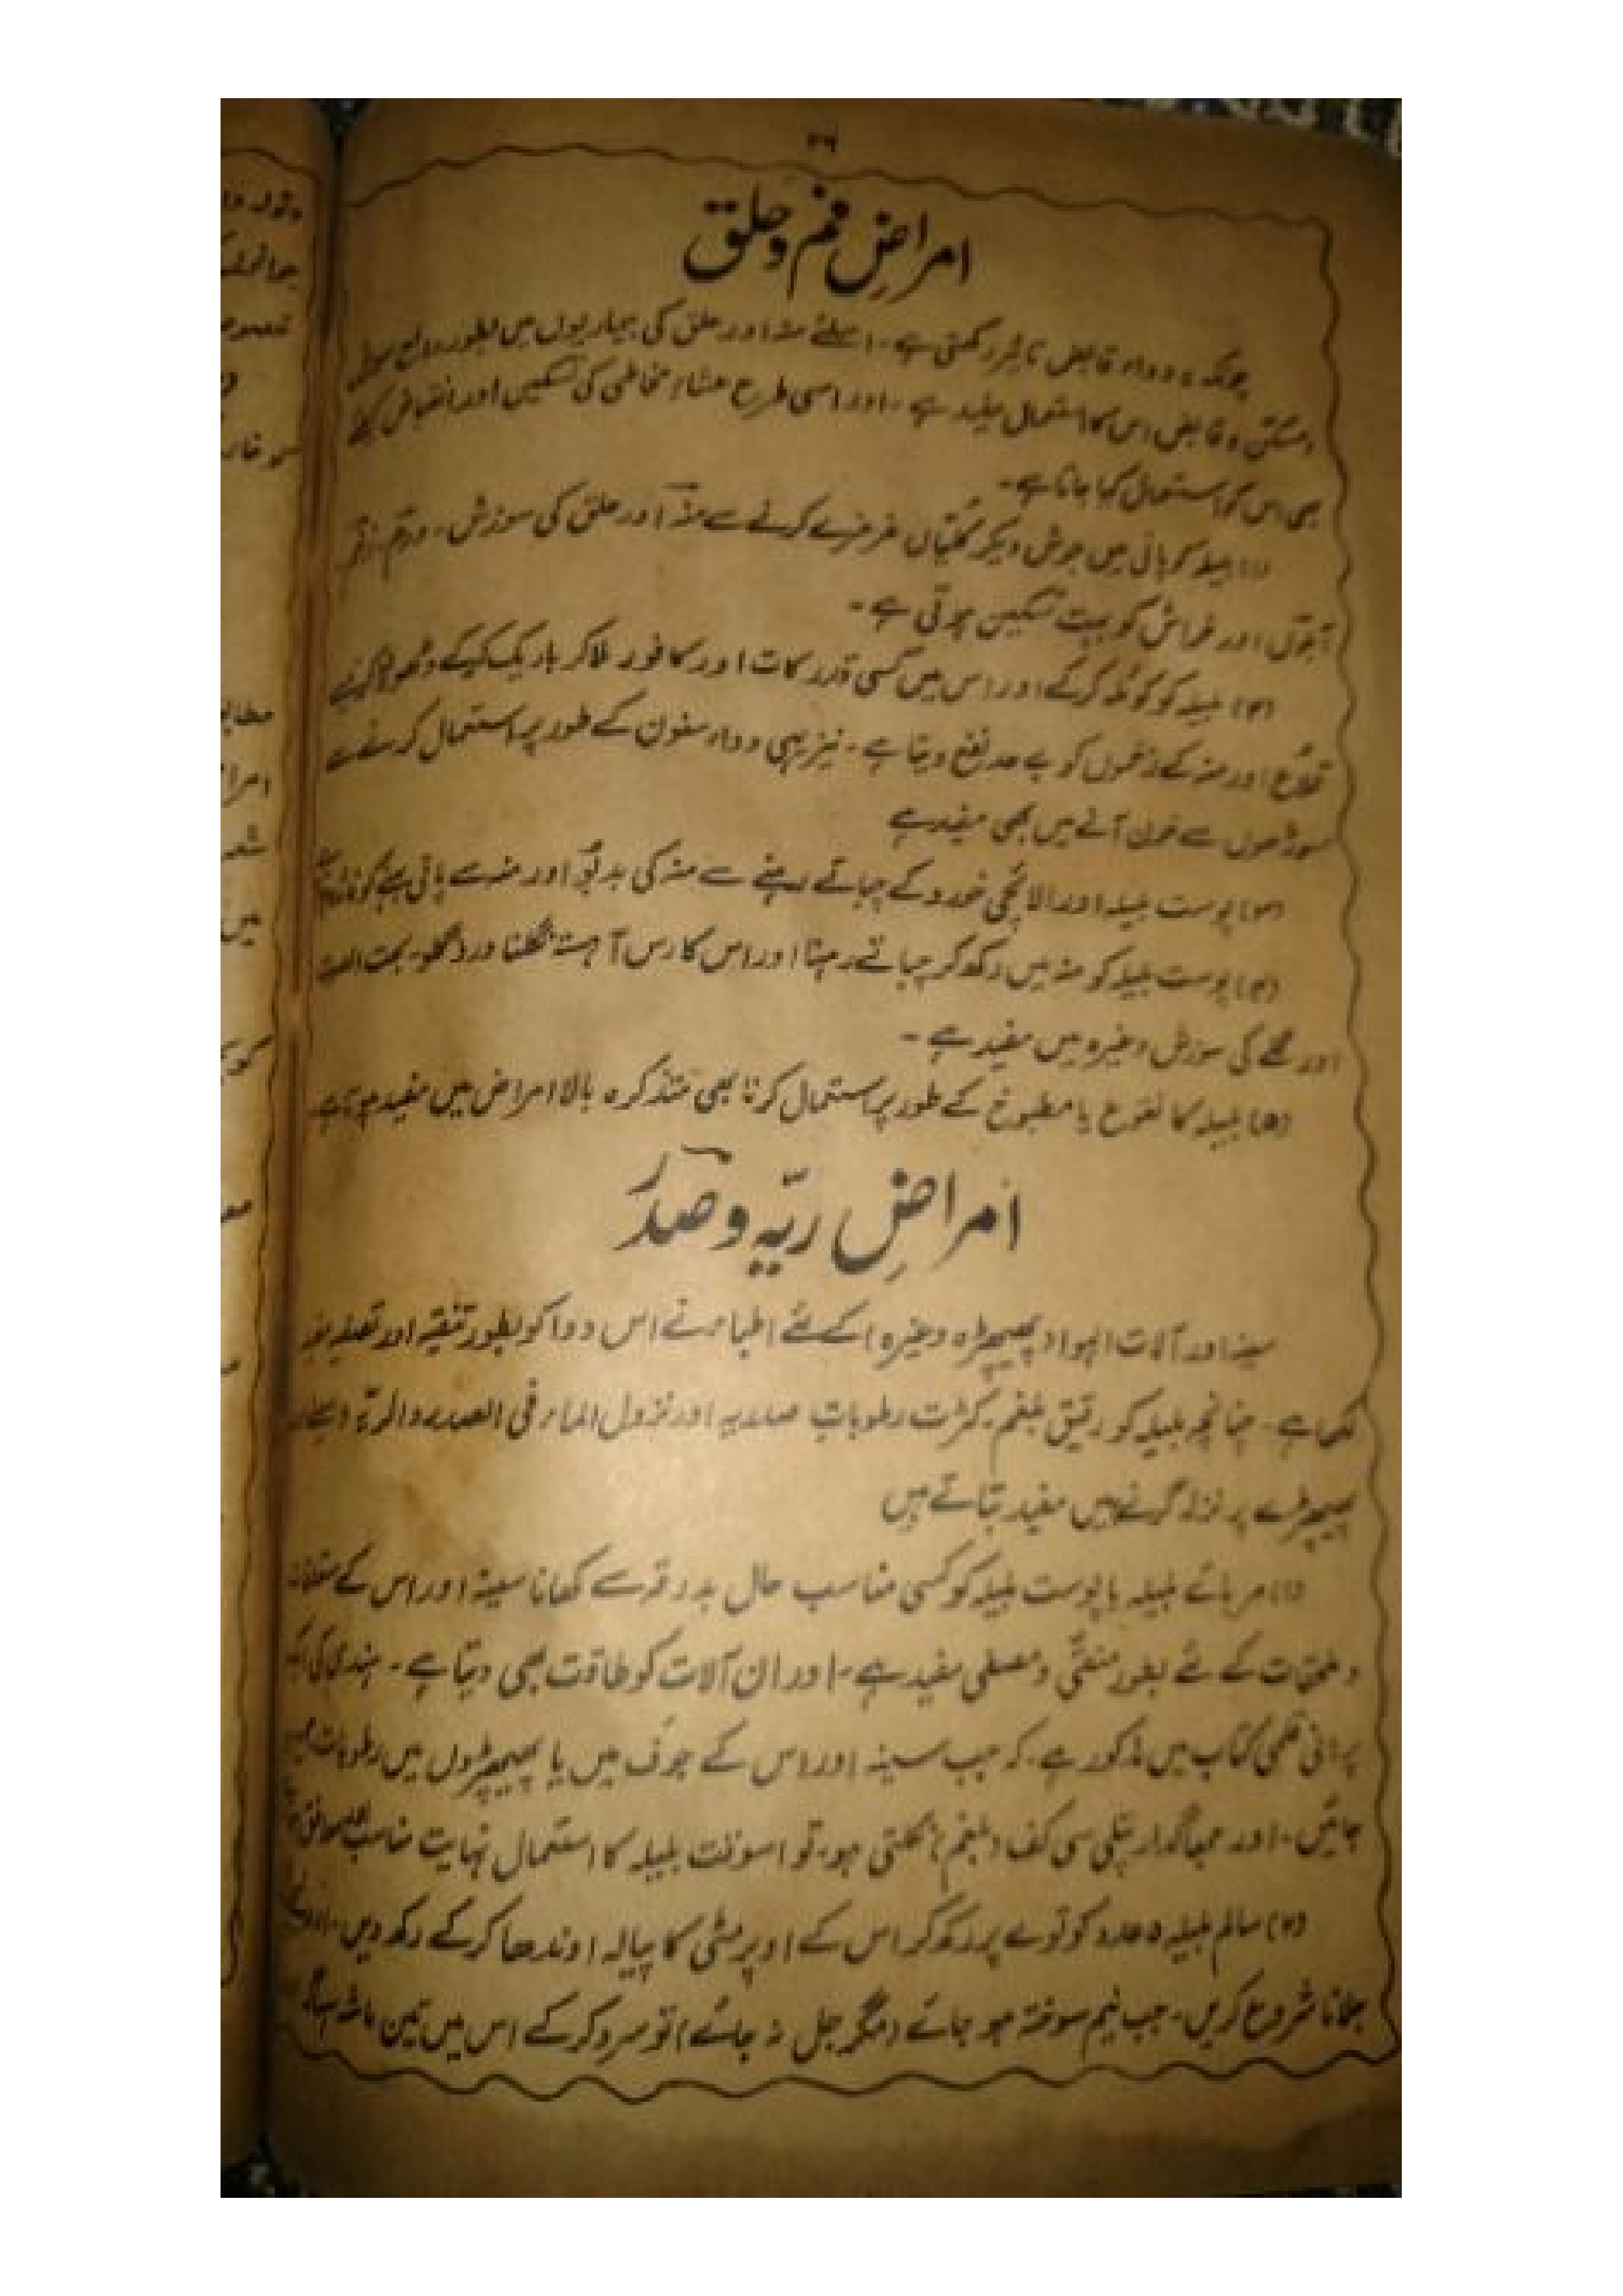 ۳۶
امراضِ فم و حلق
چونکہ یہ دواء قابض تاثیر رکھتی ہے۔ اسلئے منہ اور حلق کی بیماریوں میں بطور
و مسکن و قابض اس کا استعمال مفید ہے۔ اور اسی طرح غشاء مخاطی کی تسکین اور انقباض کیلئے
بھی اس کو استعمال کیا جاتا ہے۔
(۱) ہلیلہ کو پانی میں جوش دیکر کلیاں غرغرے کرنے سے منہ اور حلق کی سوزش۔ ورم۔ زخم
آبلوں اور خراش کو بہت تسکین ہوتی ہے۔
(۲) ہلیلہ کو کوئلہ کر کے اور اس میں کسی قدر کات اور کافور ملا کر باریک کر کے
قلاع اور منہ کے زخموں کو بے حد نفع دیتا ہے۔ نیز یہی دواء سفوف کے طور پر استعمال کرنے سے
مسوڑھوں سے خون آنے میں بھی مفید ہے
(۳) پوست ہلیلہ اور الائچی خورد کے چباتے رہنے سے منہ کی بدبو اور منہ سے پانی بہنے کو
(۴) پوست ہلیلہ کو منہ میں رکھ کر چباتے رہنا اور اس کا رس آہستہ نگلنا درد گلو۔ بحت الصوت
اور گلے کی سوزش وغیرہ میں مفید ہے۔
(۵) ہلیلہ کا نقوع یا مطبوخ کے طور پر استعمال کرنا بھی متذکرہ بالا امراض میں مفید ہوتا ہے
امراضِ ریّہ و صدر
سینہ اور آلات الہوا (پھیپھڑہ وغیرہ) کے لئے اطباء نے اس دوا کو بطور تنقیہ اور
لکھا ہے۔ چنانچہ ہلیلہ کو رقیق بلغم۔ کثرت رطوبات صدریہ اور نزول الماء فی الصدر والریّہ
پھیپھڑے پر نزلہ گرنے میں مفید بتاتے ہیں
(۱) مربائے ہلیلہ یا پوست ہلیلہ کو کسی مناسب حال بدرقہ سے کھانا سینہ اور اس کے متعلقات
و ملحقات کے لئے بطور منقّی و مصفی مفید ہے۔ اور ان آلات کو طاقت بھی دیتا ہے۔ ہندی کی ایک
پرانی قلمی کتاب میں مذکور ہے۔ کہ جب سینہ اور اس کے جوف میں یا پھیپھڑوں میں رطوبات
جائیں۔ اور جھاگدار پتلی سی کف (بلغم) نکلتی ہو۔ تو اسوقت ہلیلہ کا استعمال نہایت مناسب
(۲) سالم ہلیلہ ۵ عدد کو توے پر رکھ کر اس کے اوپر مٹی کا پیالہ اوندھا کر کے رکھ دیں۔
جلانا شروع کریں۔ جب نیم سوختہ ہو جائے (مگر جل نہ جائے) تو سرد کر کے اس میں تین ماشہ